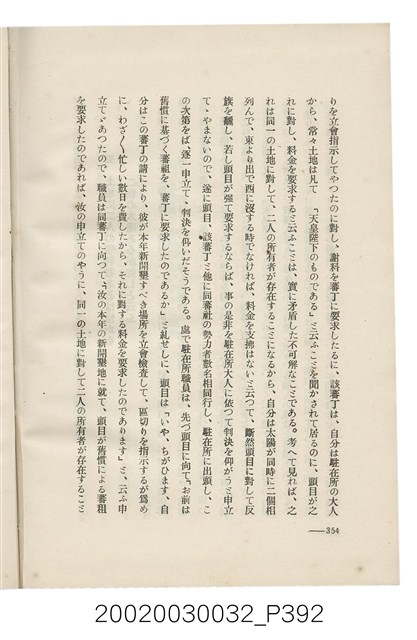 りを立會指示してやつたのに對し、謝料を蕃丁に要求したるに、該蕃丁は、自分は駐在所の大人
から、常々土地は凡て「天皇陛下のものである」と云ふことを聞かされて居るのに、頭目が之
れに對し、料金を要求すると云ふことは、實に矛盾した不可解なことである。考へて見れば、之
れは同一の土地に對して、二人の所有者が存在することになるから、自分は太陽が同時に二個相
列んで、東より出で西に沒する時でなければ、料金を支拂はないと云つて、斷然頭目に對して反
旗を飜し、若し頭目が强て要求するならば、事の是非を駐在所大人に依つて判決を仰がうと申立
て、やまないので、遂に頭目、該蕃丁と他に同蕃社の勢力者數名相同行し、駐在所に出頭し、こ
の次第をば、逐一申立て、判決を仰いだそうである。處で駐在所職員は、先づ頭目に向て「お前は
舊慣に基づく蕃租を、蕃丁に要求したのであるか」と糺せしに、頭目は「いや、ちがひます、自
分はこの蕃丁の請により、彼が本年新開墾すべき場所を立會檢査して、區切りを指示するが爲め
に、わざ〱忙しい數日を費したから、それに對する料金を要求したのであります」と、云ふ申
立てゞあつたので、職員は同蕃丁に向つて「汝の本年の新開墾地に就て、頭目が舊慣による蕃租
を要求したのであれば、汝の申立てのやうに、同一の土地に對して二人の所有者が存在することゝ
354
20020030032_P392